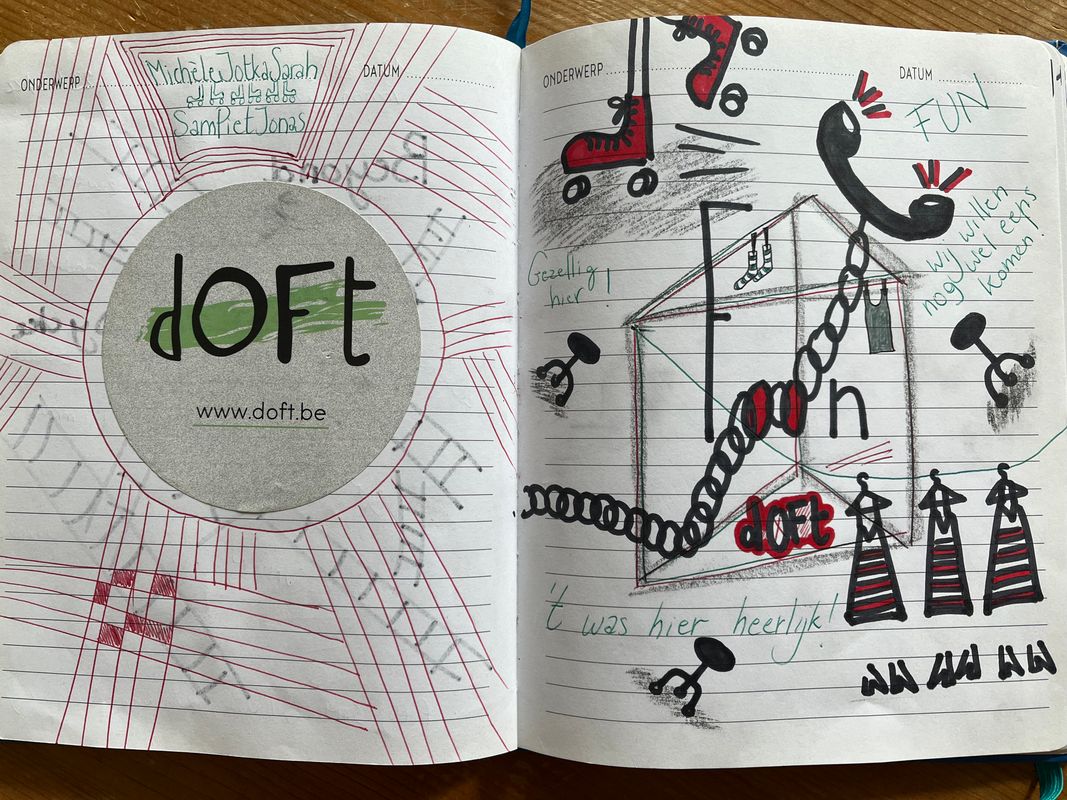 ONDERWERP
DATUM
Michèle Jotka Sarah
Sam Piet Jonas
dOFt
www.doft.be
ONDERWERP
DATUM
FUN
Gezellig
hier!
wij willen
nog wel eens
komen!
dOFt
't was hier heerlijk!